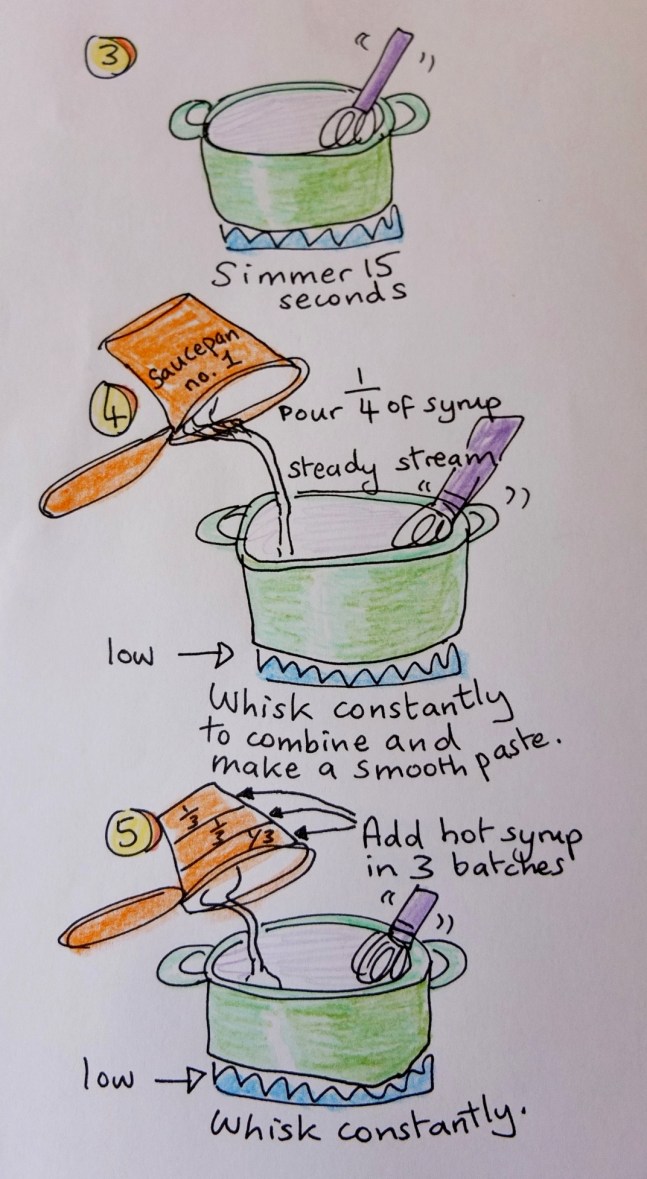 3
Simmer 15
seconds
Saucepan
no. 1
4
Pour 1/4 of syrup
steady stream
low
Whisk constantly
to combine and
make a smooth paste.
5
1/3
1/3
1/3
Add hot syrup
in 3 batches
low
Whisk constantly.